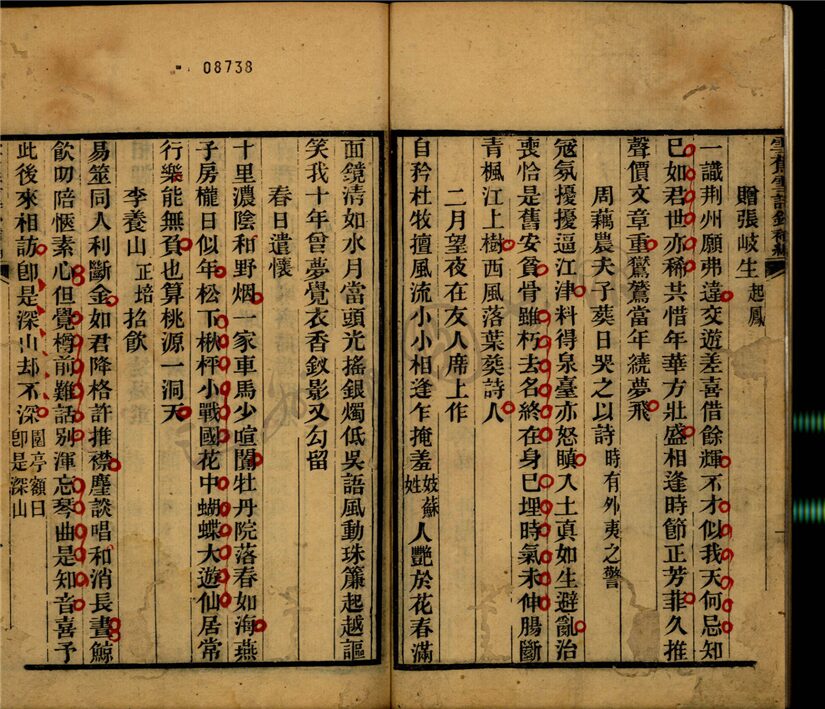 08738
贈張岐生起鳳
一識荆州願弗違交遊差喜借餘輝不才似我天何忌知
已如君世亦稀共惜年華方壯盛相逢時節正芳菲久推
聲價文章重鸞鷟當年繞夢飛
周藕農夫子葬日哭之以詩時有外夷之警
冦氛擾擾逼江津料得泉臺亦怒瞋入土真如生避亂治
喪恰是舊安貧骨雖朽去名終在身已埋時氣未伸腸斷
青楓江上樹西風落葉葬詩人
二月望夜在友人席上作
自矜杜牧擅風流小小相逢乍掩羞妓蘇姓人艷於花春滿
面鏡清如水月當頭光搖銀燭低吳語風動珠簾起越謳
笑我十年曾夢覺衣香釵影又勾留
春日遣懷
十里濃陰和野烟一家車馬少喧闐牡丹院落春如海燕
子房櫳日似年松下楸枰小戰國花中蝴蝶大遊仙居常
行樂能無負也算桃源一洞天
李養山正培招飲
易筮同人利斷金如君降格許推襟塵談唱和消長晝鯨
飲叨陪愜素心但覺樽前難話别渾忘琴曲是知音喜予
此後來相訪卽是深山却不深園亭額曰卽是深山